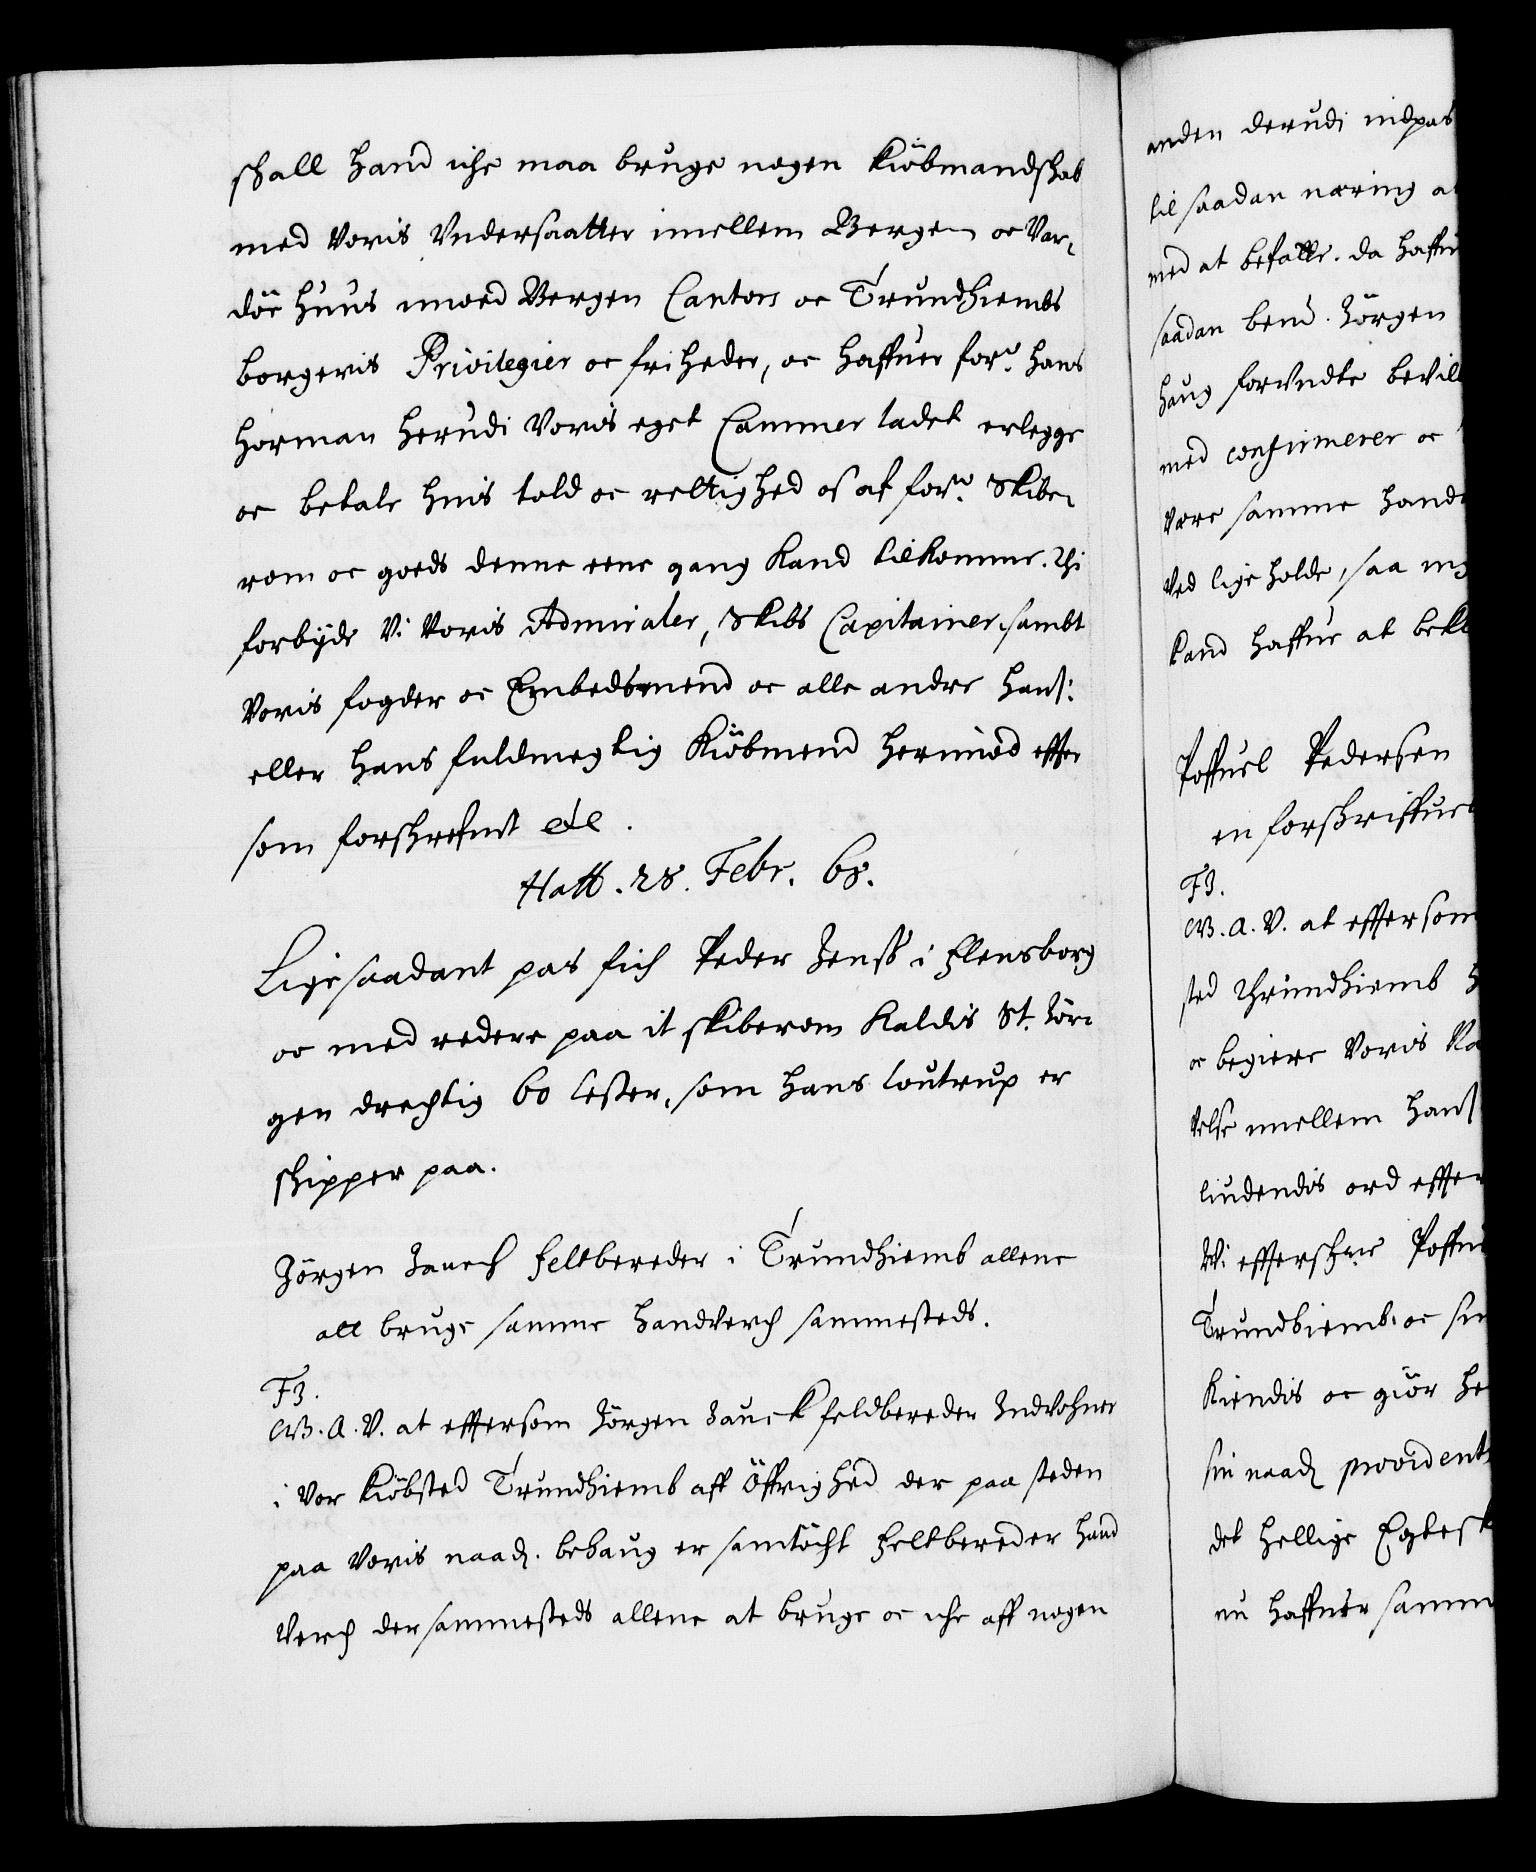 schall hand iche maa bruge nogen Kiöbmandschab
med Voris Vndersaatter imellem Bergen oc Var-
döe huus imoed Bergen Cantors oc Trundhiembs
borgeris Privilegier oc friheder, oc haffuer for.ne hans
Horman herudi Voris eget Cammer ladet erlegge
oc betale huis told oc rettighed os af for.ne Skibe-
rom oc goeds denne eene gang Kand tilkomme. Thi
forbyde Vi Voris Admiraler, Skibs Capitainer, sambt
Voris fogder oc Embedsmend oc alle andre hans:
eller hans fuldmegtig Kiöbmend herimod effter
som forschrefuet etc.
Haff. 28. Febr. 68.
Ligesaadant pas fich Peder Jenss i Flensborg
oc med redere paa it skiberom Kaldis St. Jör-
gen drechtig 60 lester, som hans Loutrup er
schipper paa.
Jörgen Zauch feltbereder i Trundhiemb allene
att bruge samme handverch sammesteds.
F3.
G.A.V. at effterson Jörgen Zauck feldbereder Indvohner
i Vor Kiöbsted Trundhiemb aff Öffrighed der paa steden
paa Voris naadg. behaug er samtöcht Feltbereder hand
Verch dersammesteds allene at bruge oc iche aff nogen
anden derudi indpas
til saadan næring at
med at befatte. da haffu
saadan bemt. Jörgen
haug forundte bevill
med confirmerer oc
være samme hande
Ved lige holde, saa in
Kand haffue at bekl
Poffuel Pedersen
en forschriffuel
F3.
G.A.V. at effterson
sted Thrundhiemb
oc begiere Voris Na
velse imellem hans
liudendis ord effter
Vi effterschr.ne Poffu
Trundhiemb. oc
Kiendis oc giör he
sin naadg providents
det hellige Egtesk
nu haffuer samm